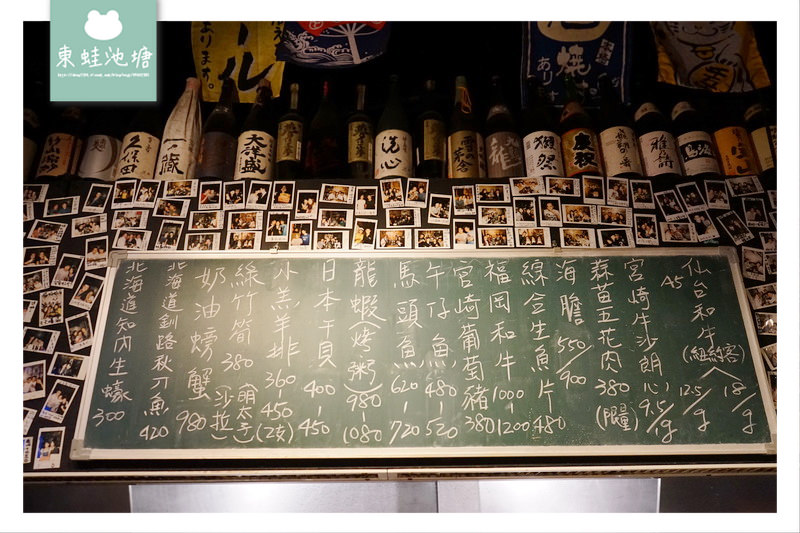 東蛙池塘
よります。
ール
焼
あり
久保田
一藏
大洋盛
洗心
獺祭
仙台和牛
(紐約客)
A5
12.5/g
18/g
宮崎牛沙朗
(心)
9.5/g
蒜苗五花肉
380
(限量)
海膽
550/900
綜合生魚片
480
福岡和牛
1000-1200
宮崎葡萄豬
380
午仔魚
480-520
馬頭魚
620-720
龍蝦(烤、粥)
980-1080
日本干貝
400-450
小羔羊排
360-450
(2支)
綠竹筍
380
(沙拉)
(明太子)
奶油螃蟹
980
北海道釧路秋刀魚
420
北海道知內生蠔
300